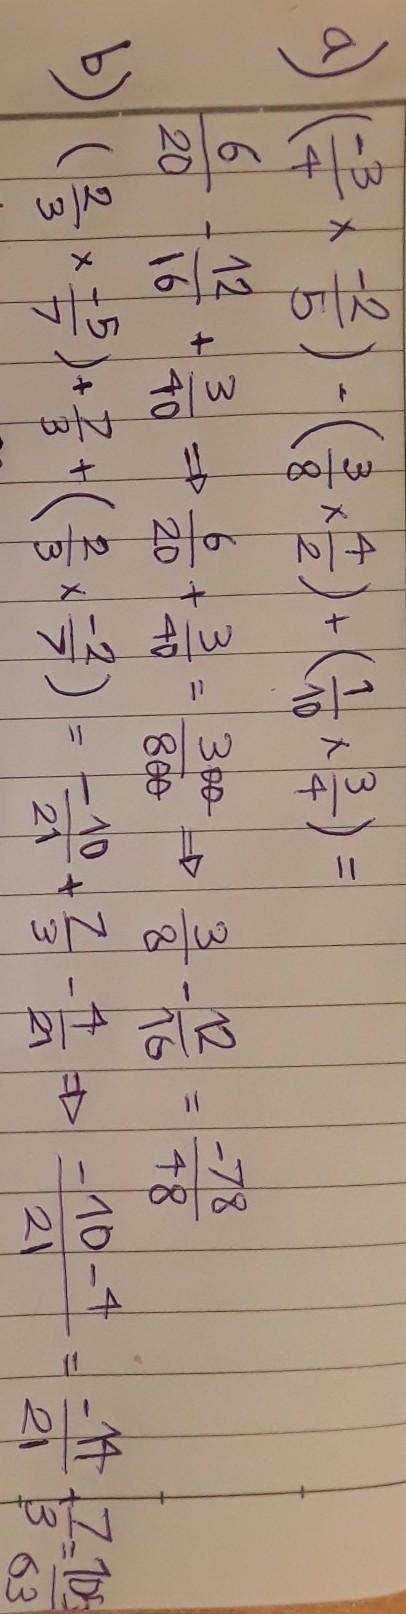 a) (-3/4 × -2/5) - (3/8 × 4/2) + (1/10 × 3/4) =
6/20 - 12/16 + 3/40 ⇒ 6/20 + 3/40 = 300/800 ⇒ 3/8 - 12/16 = -78/48
b) (2/3 × -5/7) + 7/3 + (2/3 × -2/7) = -10/21 + 7/3 - 4/21 ⇒ -10-4/21 = -14/21 + 7/3 = 105/63